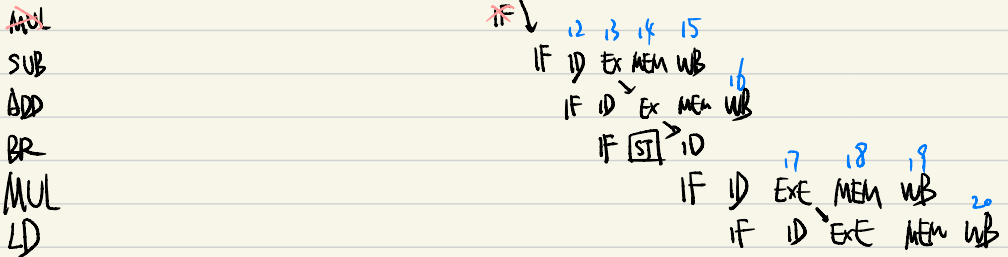 MUL IF
12 13 14 15
SUB IF ID EX MEM WB
16
ADD IF ID EX MEM WB
BR IF ST ID
17 18 19
MUL IF ID EXE MEM WB
20
LD IF ID EXE MEM WB